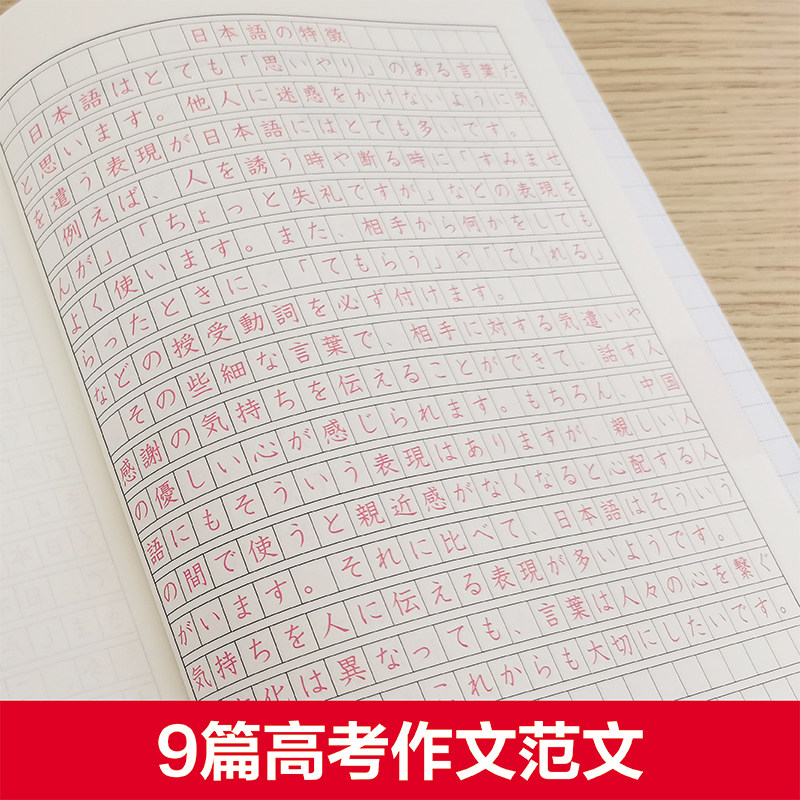 日本語の特徴
日本語はとても「思いやり」のある言葉だ
と思います。他人に迷惑をかけないように気
を遣う表現が日本語にはとても多いです。
例えば、人を誘う時や断る時に「すみませ
んが」「ちょっと失礼ですが」などの表現を
よく使います。また、相手から何かをしても
らったときに、「てもらう」や「てくれる」
などの授受動詞を必ず付けます。
その些細な言葉で、相手に対する気遣いや
感謝の気持ちを伝えることができて、話す人
の優しい心が感じられます。もちろん、中国
語にもそういう表現はありますが、親しい人
の間で使うと親近感がなくなると心配する人
がいます。それに比べて、日本語はそういう
気持ちを人に伝える表現が多いようです。
化は異なっても、言葉は人々の心を繋ぐ
これからも大切にしたいです。
9篇高考作文范文